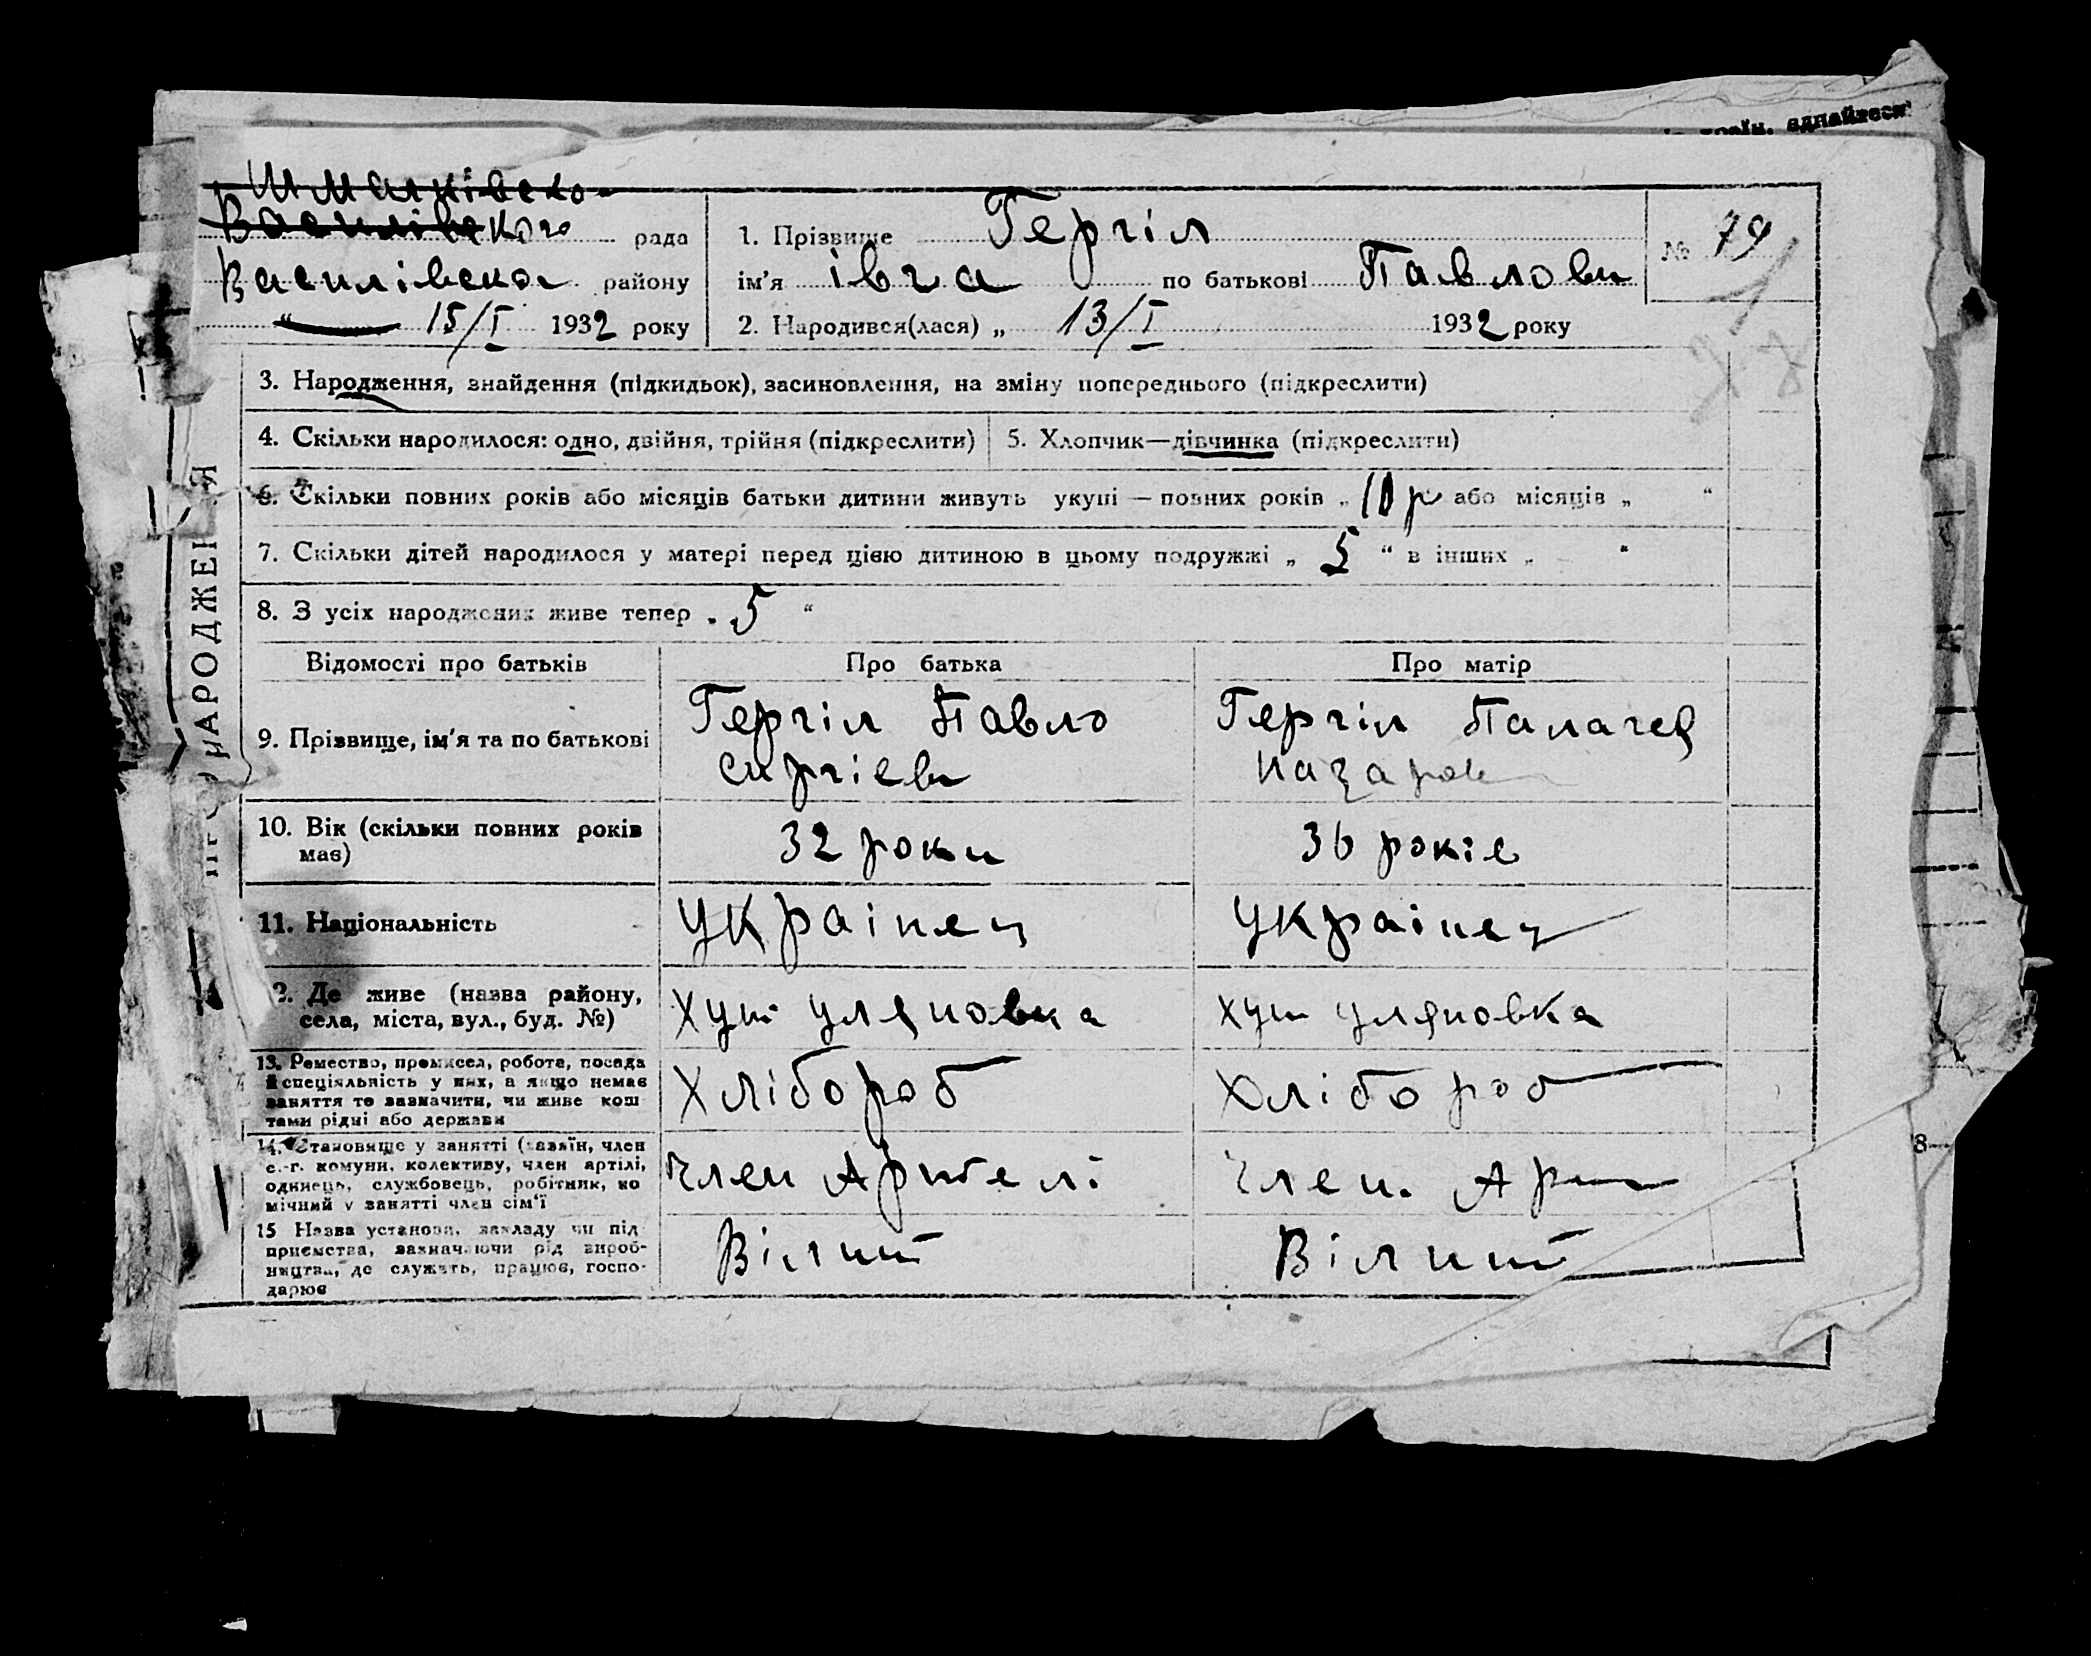 країн, єднайтеся!
Шмалківсько-
Василівського рада
Василівсько району
" 15/I 1932 року
1. Прізвище Гергіл
ім'я івга по батькові Павлови
2. Народився(лася) „ 13/I 1932 року
№ 79
3. Народження, знайдення (підкидьок), засиновлення, на зміну попереднього (підкреслити)
4. Скільки народилося: одно, двійня, трійня (підкреслити)
5. Хлопчик—дівчинка (підкреслити)
6. Скільки повних років або місяців батьки дитини живуть укупі — повних років „ 10 р або місяців „ “
7. Скільки дітей народилося у матері перед цією дитиною в цьому подружжі „ 5 “ в інших „ “
8. З усіх народжених живе тепер „ 5 “
НАРОДЖЕННЯ
Відомості про батьків Про батька Про матір
9. Прізвище, ім'я та по батькові
Гергіл Павло
сиргієви
Гергіл Палагея
назаров
10. Вік (скільки повних років
має)
32 роки
36 років
11. Національність українец українец
2. Де живе (назва району,
села, міста, вул., буд. №)
хут уляновка
хут уляновка
13. Ремество, промисел, робота, посада
й спеціяльність у них, а якщо немає
заняття то зазначити, чи живе кош
тами рідні або держави
хлібороб
хлібороб
14. Становище у занятті (хазяїн, член
с.-г. комуни, колективу, член артілі,
одинець, службовець, робітник, по
мічний у занятті член сім'ї
член Артелі
член. Арт
15 Назва установи, закладу чи під
приємства, зазначаючи рід вироб-
ництва, де служить, працює, госпо-
дарює
Вілит
Вілит
8—